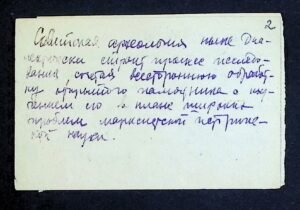 2
Советская археология ныне Диа-
лектически строит процесс исследо-
вания, сочетая всестороннюю обработ-
ку открытого памятника с изу-
чением его в плане широких
проблем марксистской историче-
ской науки.